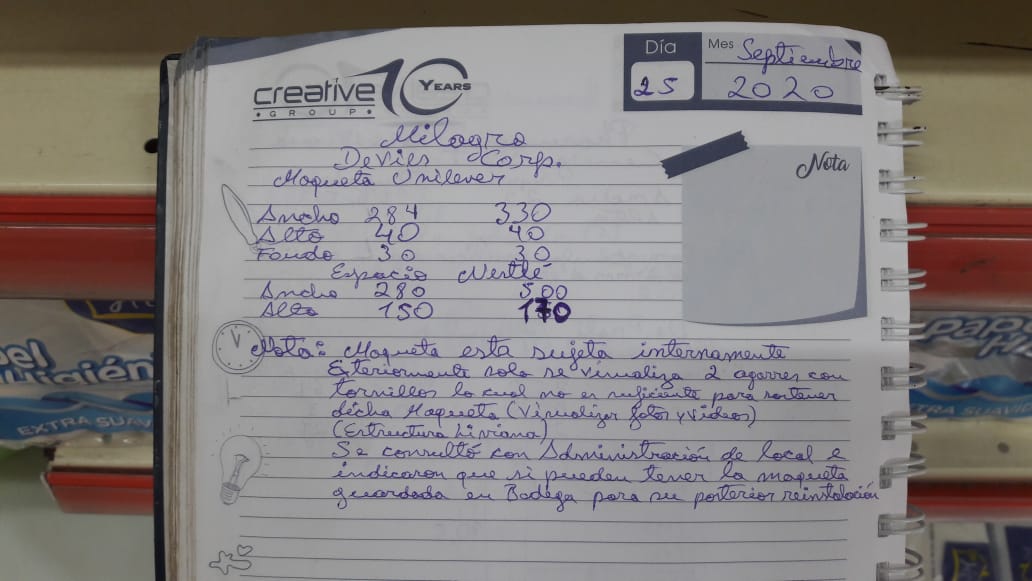 Día
Mes Septiembre
25
2020
creative
GROUP
10 YEARS
Milagro
Devies Corp.
Maqueta Unilever
Nota
Ancho 284 330
Alto 40 40
Fondo 30 30
Espacio Nestlé
Ancho 280 500
Alto 150 170
Nota: Maqueta esta sujeta internamente
Exteriormente solo se visualiza 2 agarres con
tornillos lo cual no es suficiente para sostener
dicha Maqueta (Visualizar fotos y Videos)
(Estructura Liviana)
Se consultó con Administración de local e
indicaron que si pueden tener la maqueta
guardada en Bodega para su posterior reinstalación
EXTRA SUAV
EXTRA SUAV